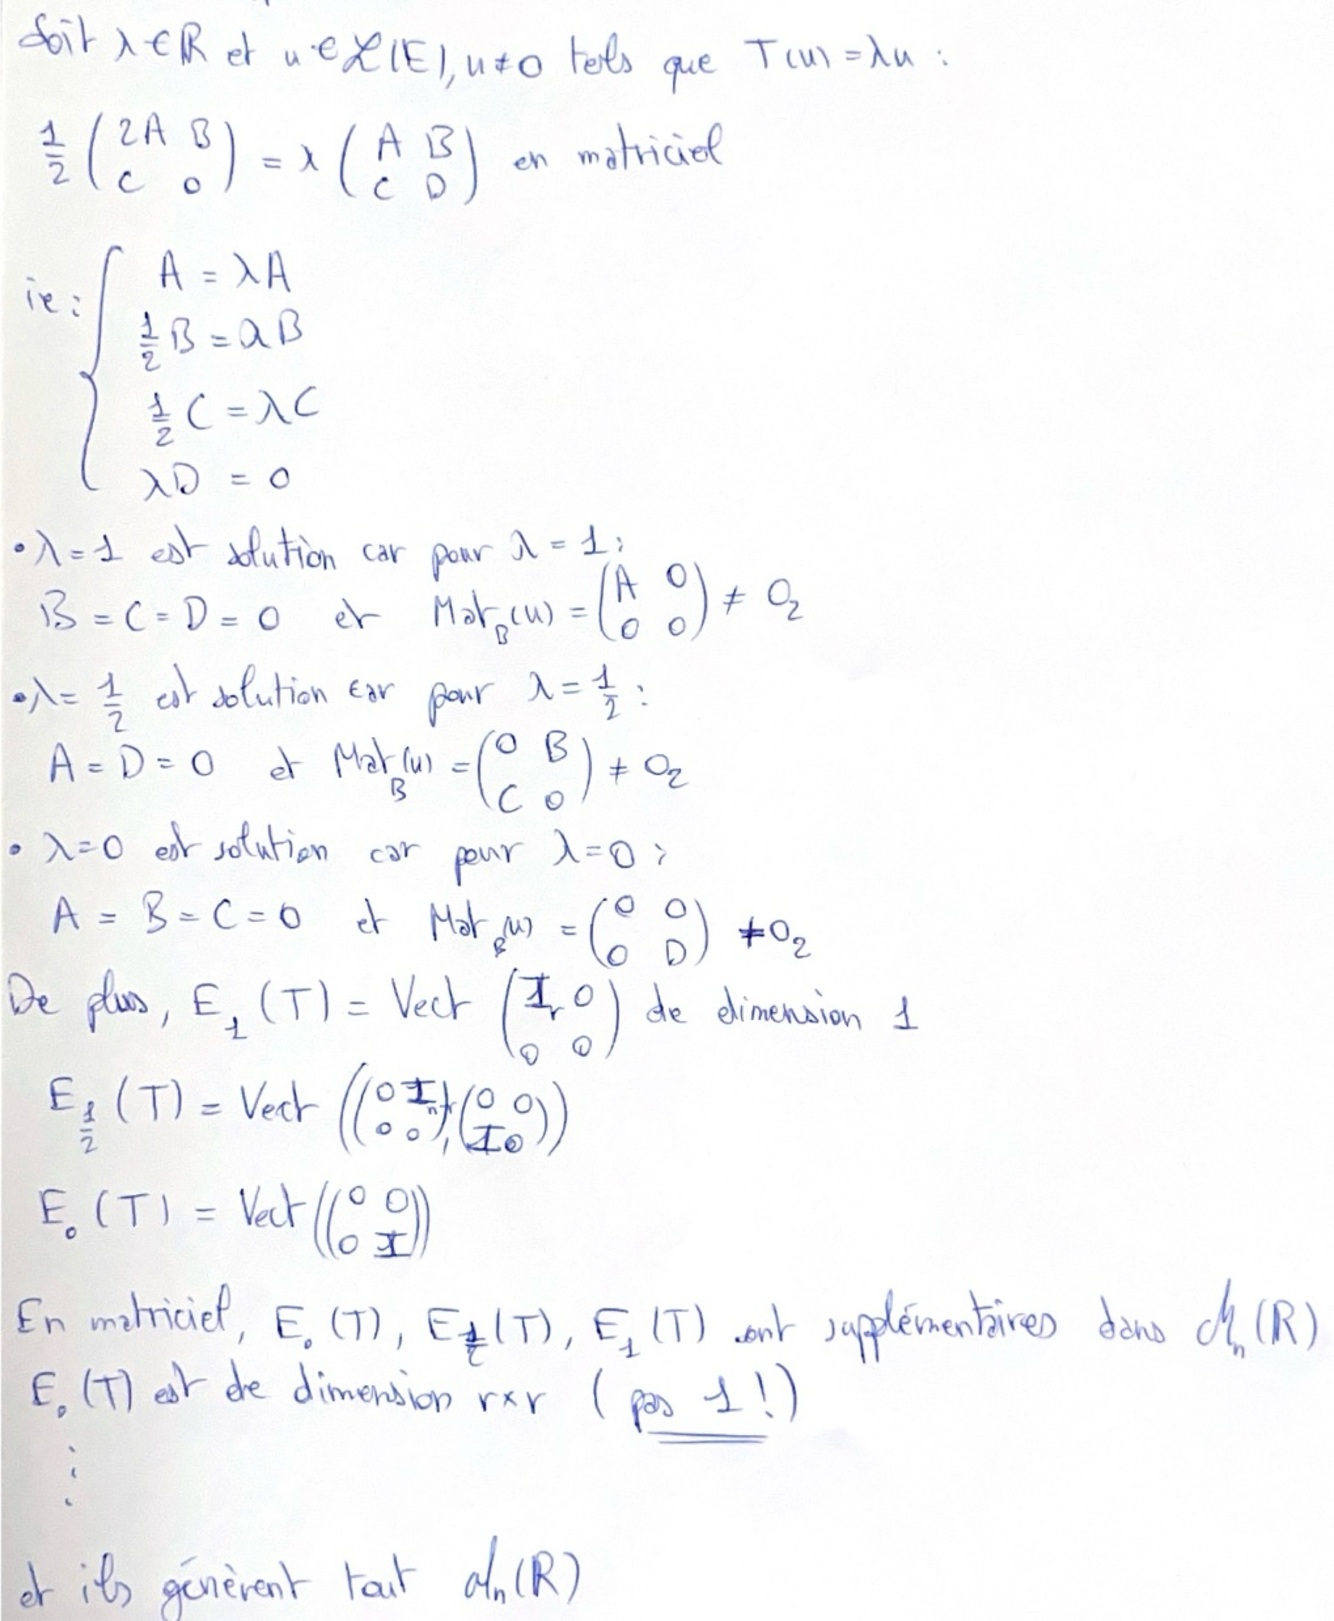 Soit λ ∈ R et u ∈ L(E), u ≠ 0 tels que T(u) = λu :
1/2 (2A B ; C 0) = λ (A B ; C D) en matriciel
ie : { A = λA
1/2 B = λB
1/2 C = λC
λD = 0
• λ = 1 est solution car pour λ = 1 :
B = C = D = 0 et Mat_B(u) = (A 0 ; 0 0) ≠ 0_2
• λ = 1/2 est solution car pour λ = 1/2 :
A = D = 0 et Mat_B(u) = (0 B ; C 0) ≠ 0_2
• λ = 0 est solution car pour λ = 0 :
A = B = C = 0 et Mat_B(u) = (0 0 ; 0 D) ≠ 0_2
De plus, E_1(T) = Vect (I_r 0 ; 0 0) de dimension 1
E_1/2(T) = Vect ((0 I ; 0 0), (0 0 ; I 0))
E_0(T) = Vect((0 0 ; 0 I))
En matriciel, E_0(T), E_1/2(T), E_1(T) sont supplémentaires dans M_n(R)
E_0(T) est de dimension r×r (pas 1!)
⋮
et ils génèrent tout M_n(R)